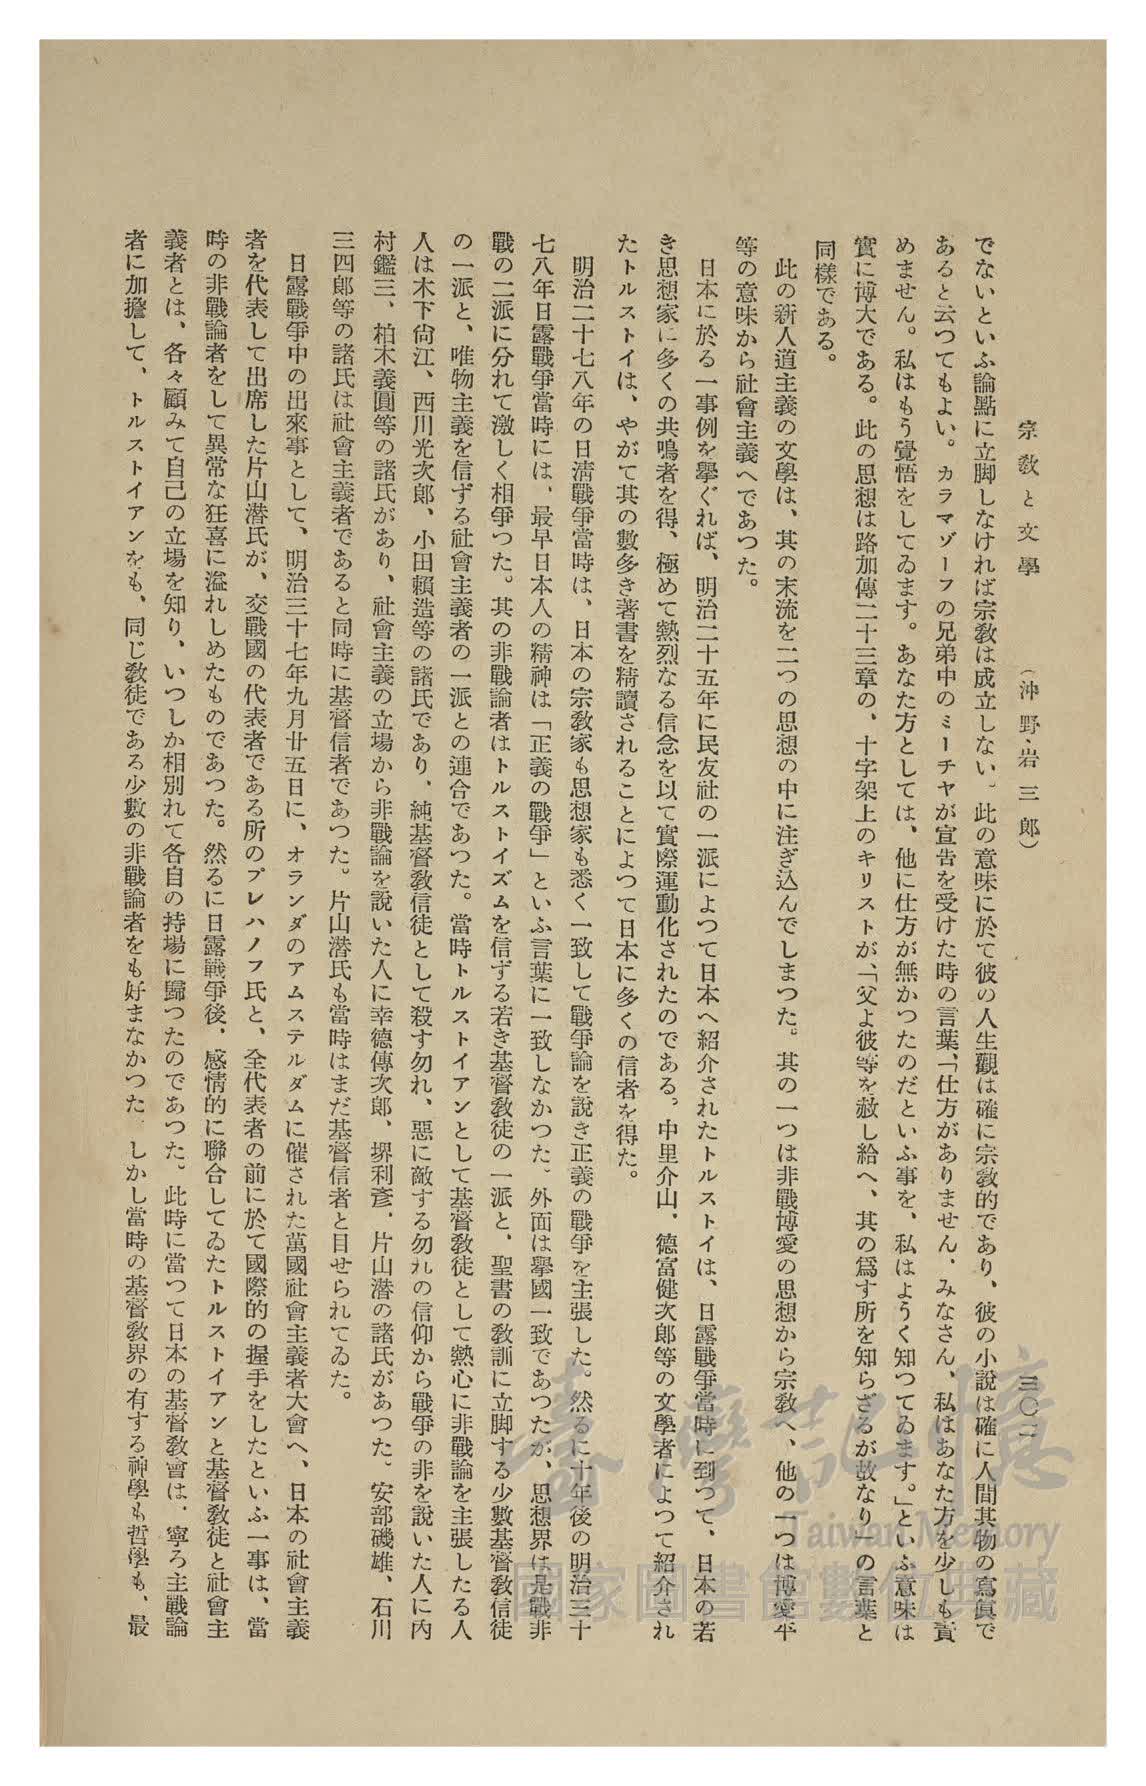 宗教と文學　　（沖野岩三郎）　　三〇二
でないといふ論點に立脚しなければ宗教は成立しない。此の意味に於て彼の人生觀は確に宗教的であり、彼の小説は確に人間其物の寫眞で
あると云つてもよい。カラマゾーフの兄弟中のミーチヤが宣告を受けた時の言葉、「仕方がありません、みなさん、私はあなた方を少しも責
めません。私はもう覺悟をしてゐます。あなた方としては、他に仕方が無かつたのだといふ事を、私はようく知つてゐます。」といふ意味は
實に博大である。此の思想は路加傳二十三章の、十字架上のキリストが、「父よ彼等を赦し給へ、其の爲す所を知らざるが故なり」の言葉と
同樣である。
此の新人道主義の文學は、其の末流を二つの思想の中に注ぎ込んでしまつた。其の一つは非戰博愛の思想から宗教へ、他の一つは博愛平
等の意味から社會主義へであつた。
日本に於る一事例を擧ぐれば、明治二十五年に民友社の一派によつて日本へ紹介されたトルストイは、日露戰爭當時に到つて、日本の若
き思想家に多くの共鳴者を得、極めて熱烈なる信念を以て實際運動化されたのである。中里介山、德富健次郎等の文學者によつて紹介され
たトルストイは、やがて其の數多き著書を精讀されることによつて日本に多くの信者を得た。
明治二十七八年の日淸戰爭當時は、日本の宗教家も思想家も悉く一致して戰爭論を説き正義の戰爭を主張した。然るに十年後の明治三十
七八年日露戰爭當時には、最早日本人の精神は「正義の戰爭」といふ言葉に一致しなかつた。外面は擧國一致であつたが、思想界は是戰非
戰の二派に分れて激しく相爭つた。其の非戰論者はトルストイズムを信ずる若き基督教徒の一派と、聖書の教訓に立脚する少數基督教信徒
の一派と、唯物主義を信ずる社會主義者の一派との連合であつた。當時トルストイアンとして基督教徒として熱心に非戰論を主張したる人
人は木下尙江、西川光次郎、小田賴造等の諸氏であり、純基督教信徒として殺す勿れ、惡に敵する勿れの信仰から戰爭の非を説いた人に內
村鑑三、柏木義圓等の諸氏があり、社會主義の立場から非戰論を説いた人に幸德傳次郎、堺利彥、片山潜の諸氏があつた。安部磯雄、石川
三四郎等の諸氏は社會主義者であると同時に基督信者であつた。片山潜氏も當時はまだ基督信者と目せられてゐた。
日露戰爭中の出來事として、明治三十七年九月廿五日に、オランダのアムステルダムに催された萬國社會主義者大會へ、日本の社會主義
者を代表して出席した片山潜氏が、交戰國の代表者である所のプレハノフ氏と、全代表者の前に於て國際的の握手をしたといふ一事は、當
時の非戰論者をして異常な狂喜に溢れしめたものであつた。然るに日露戰爭後、感情的に聯合してゐたトルストイアンと基督教徒と社會主
義者とは、各々顧みて自己の立場を知り、いつしか相別れて各自の持場に歸つたのであつた。此時に當つて日本の基督教會は、寧ろ主戰論
者に加擔して、トルストイアンをも、同じ教徒である少數の非戰論者をも好まなかつた　しかし當時の基督教界の有する神學も哲學も、最
臺灣記憶
Taiwan Memory
國家圖書館數位典藏